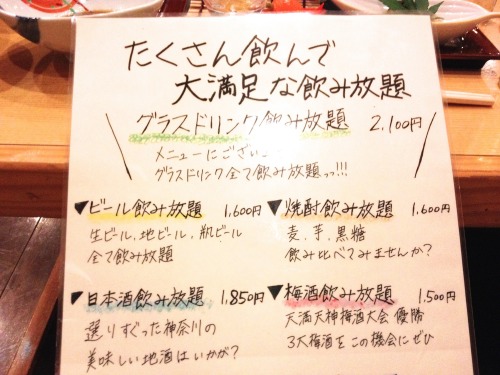 たくさん飲んで
大満足な飲み放題
グラスドリンク飲み放題 2,100円
メニューにござい
グラスドリンク全て飲み放題っ!!!
▼ビール飲み放題 1,600円
生ビール、地ビール、瓶ビール
全て飲み放題
▼焼酎飲み放題 1,600円
麦、芋、黒糖
飲み比べてみませんか?
▼日本酒飲み放題 1,850円
選りすぐった神奈川の
美味しい地酒はいかが?
▼梅酒飲み放題 1,500円
天満天神梅酒大会 優勝
3大梅酒をこの機会にぜひ